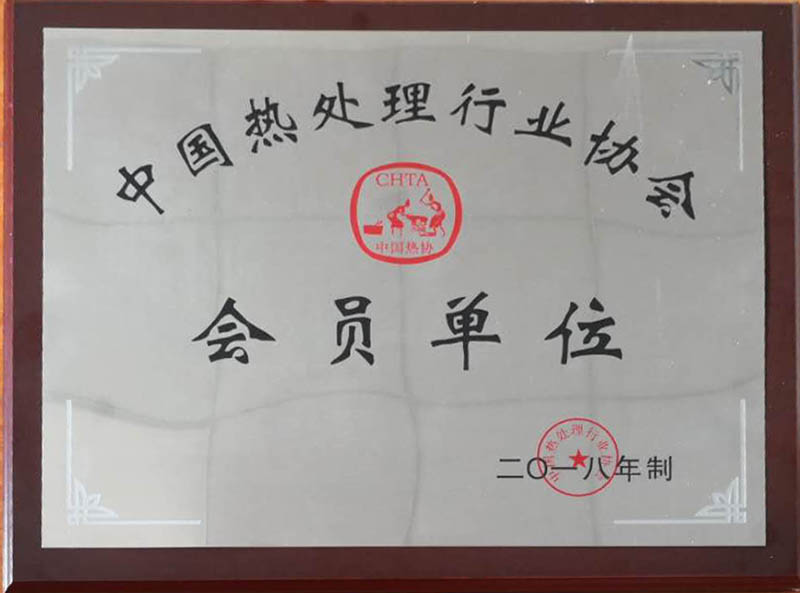 中国热处理行业协会
CHTA
中国热协
会员单位
二〇一八年制
中国热处理行业协会